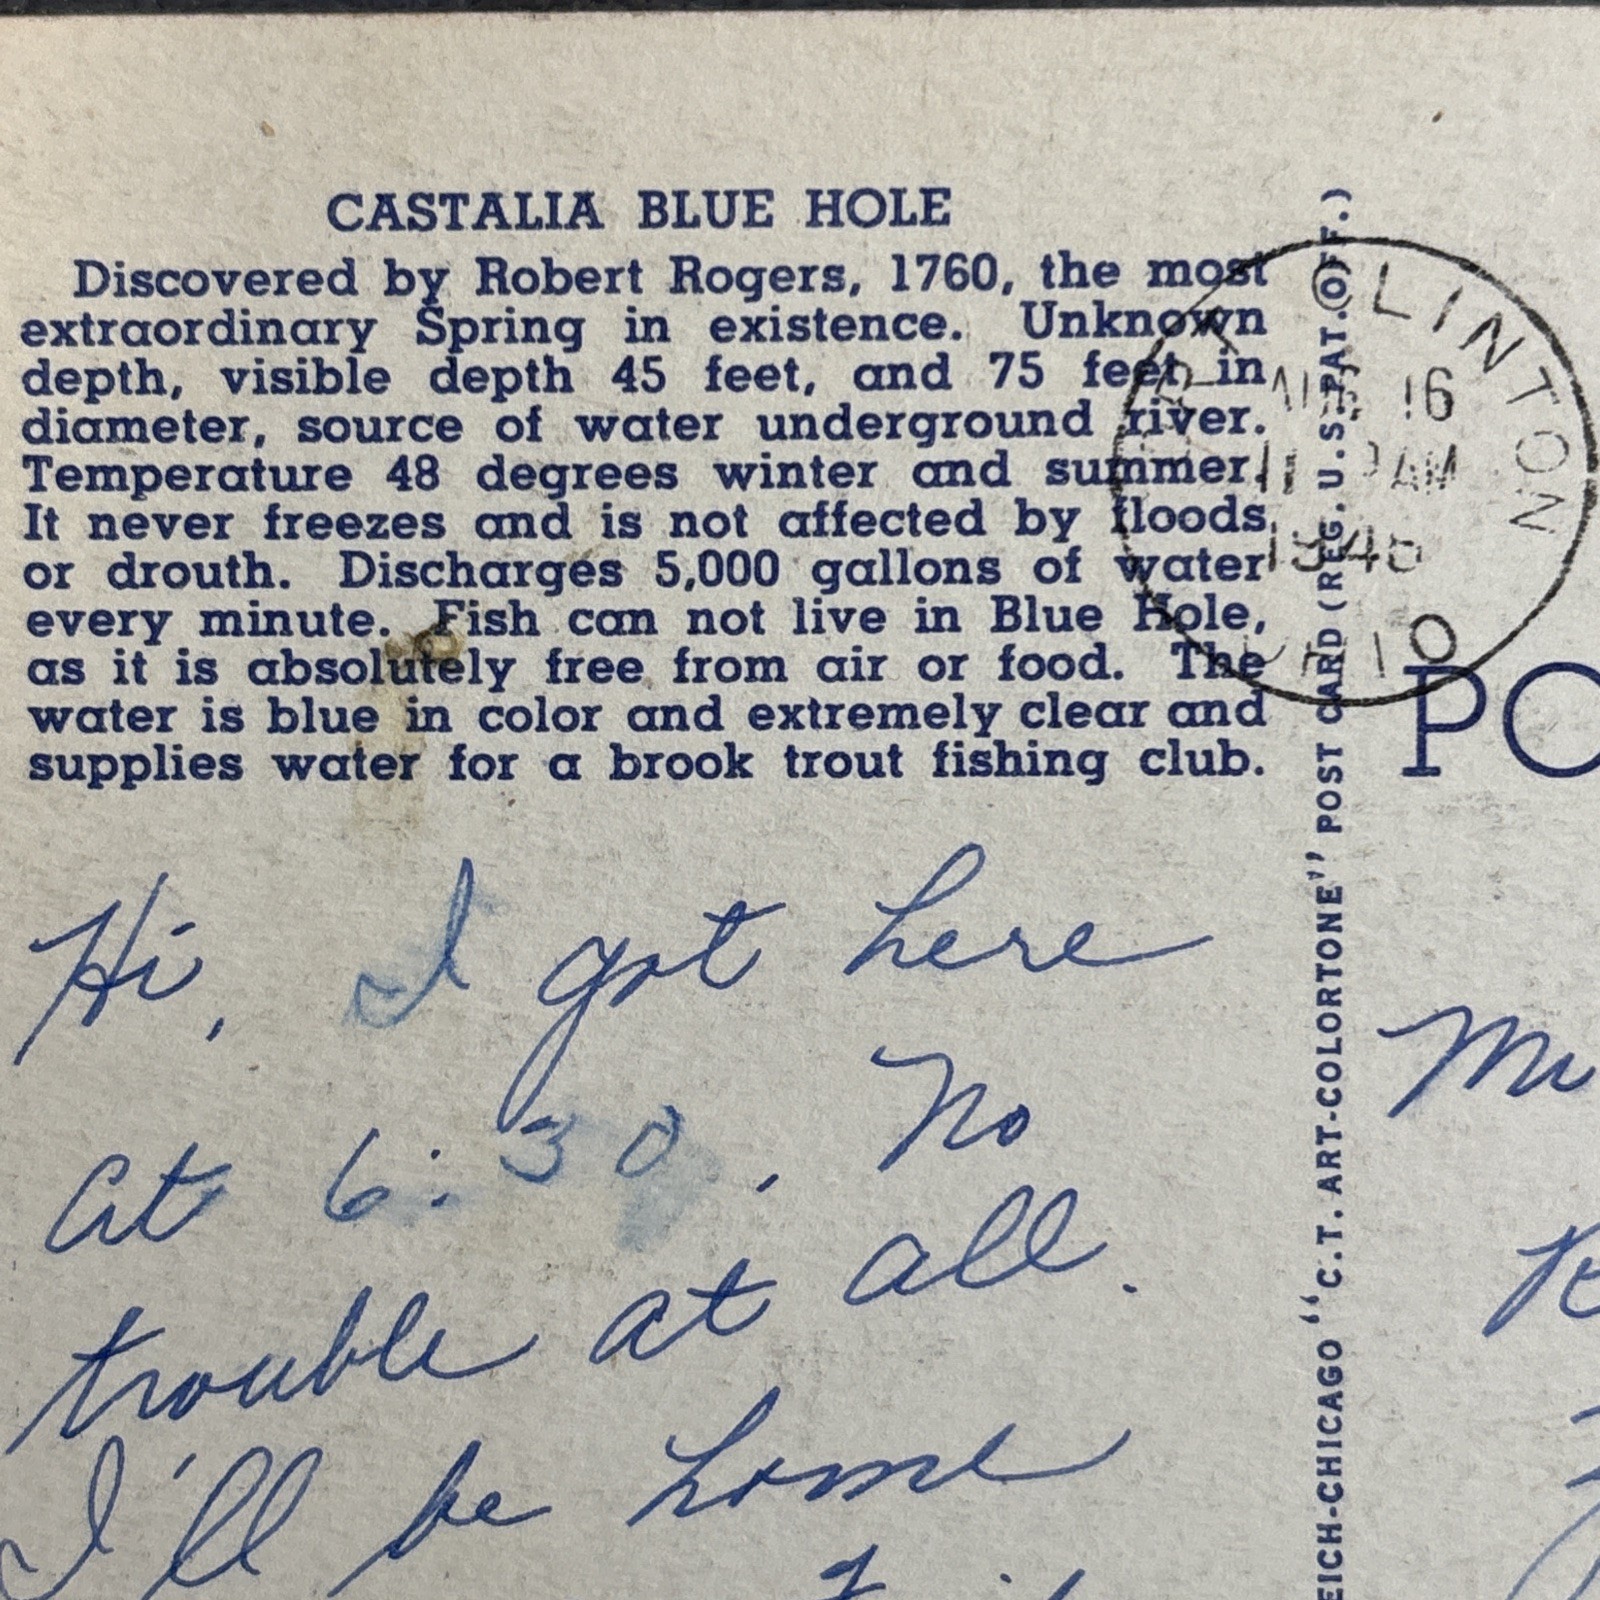 CASTALIA BLUE HOLE
Discovered by Robert Rogers, 1760, the most
extraordinary Spring in existence. Unknown
depth, visible depth 45 feet, and 75 feet in
diameter, source of water underground river.
Temperature 48 degrees winter and summer.
It never freezes and is not affected by floods
or drouth. Discharges 5,000 gallons of water
every minute. Fish can not live in Blue Hole,
as it is absolutely free from air or food. The
water is blue in color and extremely clear and
supplies water for a brook trout fishing club.
Hi, I got here
at 6:30. No
trouble at all.
I'll be home
EICH-CHICAGO "C.T. ART-COLORTONE" POST CARD (REG. U.S. PAT. OFF.)
LINTON
16
AM
PO